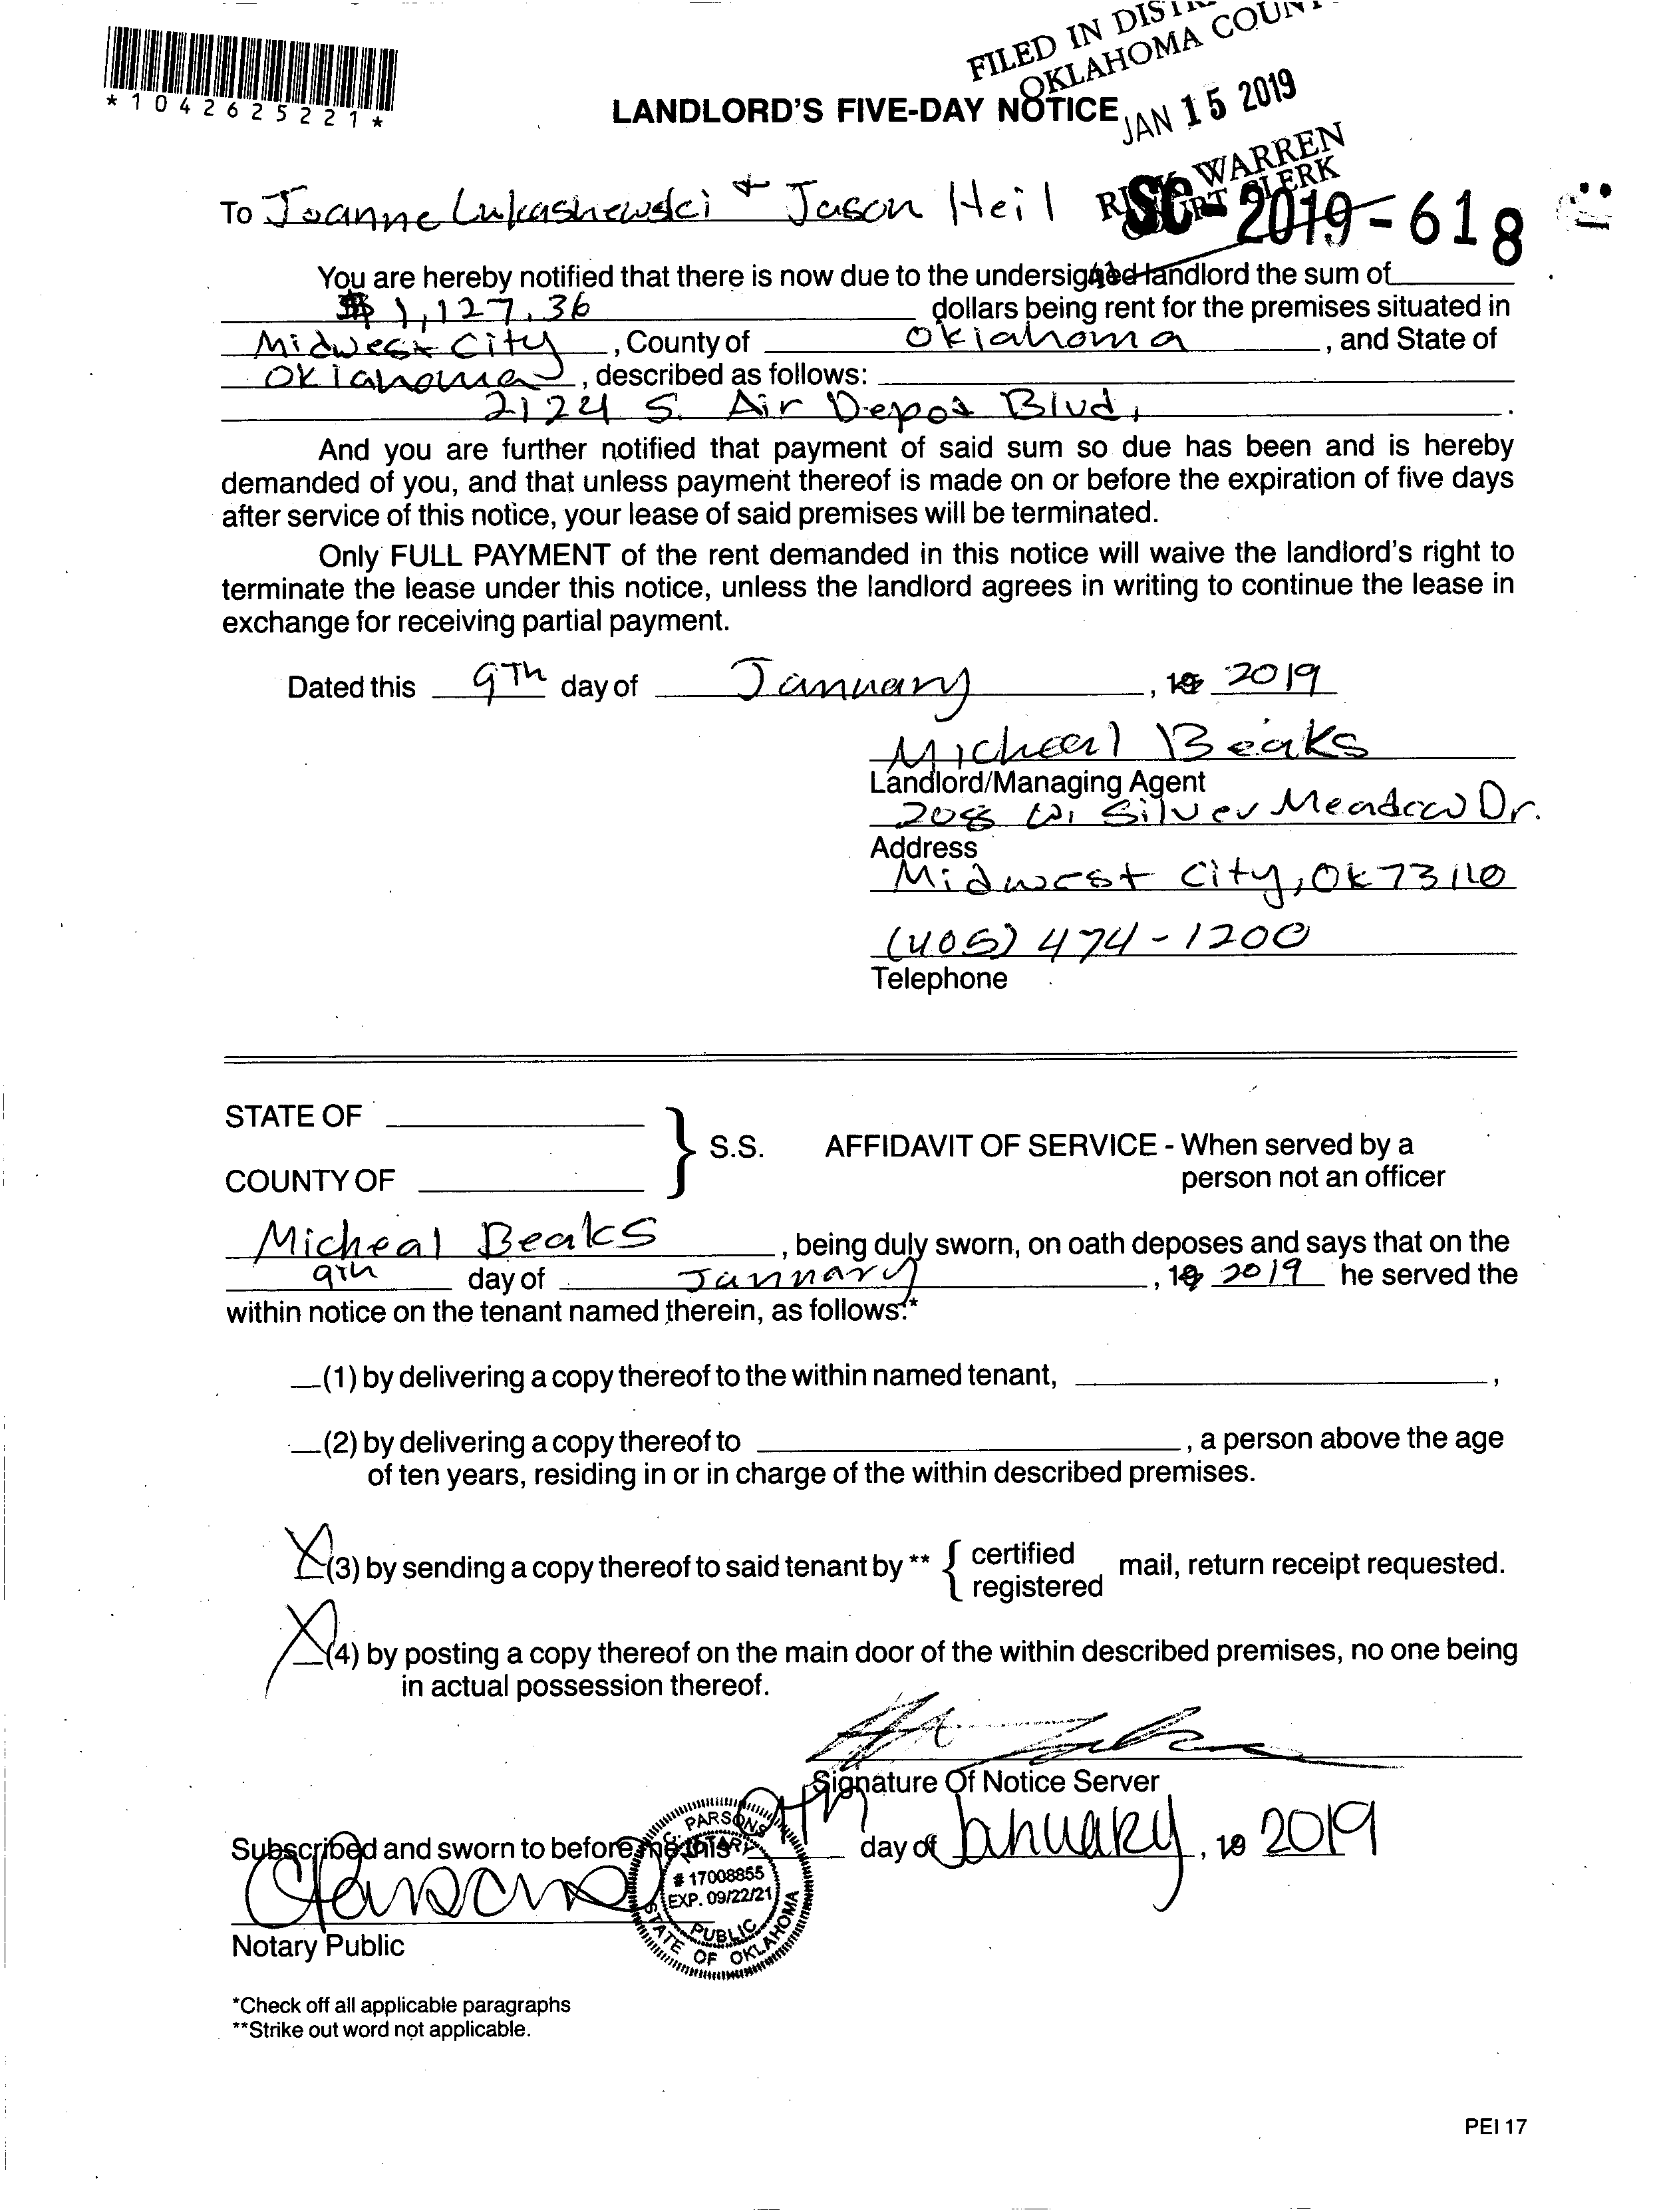 FILED IN DISTR
OKLAHOMA COUN
*1042625221*
LANDLORD'S FIVE-DAY NOTICE
JAN 15 2019
WARREN
COURT CLERK
To Joanne Lukashewski + Jason Heil
SC-2019-618
You are hereby notified that there is now due to the undersigned landlord the sum of
$1,127.36 dollars being rent for the premises situated in
Midwest City, County of Oklahoma, and State of
Oklahoma, described as follows:
2124 S. Air Depot Blvd.
And you are further notified that payment of said sum so due has been and is hereby
demanded of you, and that unless payment thereof is made on or before the expiration of five days
after service of this notice, your lease of said premises will be terminated.
Only FULL PAYMENT of the rent demanded in this notice will waive the landlord's right to
terminate the lease under this notice, unless the landlord agrees in writing to continue the lease in
exchange for receiving partial payment.
Dated this 9Th day of January, 19 2019
Micheal Beaks
Landlord/Managing Agent
208 W. Silver Meadow Dr.
Address
Midwest City, OK 73110
(405) 474-1200
Telephone
STATE OF
COUNTY OF
} S.S. AFFIDAVIT OF SERVICE - When served by a
person not an officer
Micheal Beaks, being duly sworn, on oath deposes and says that on the
9th day of January, 19 2019 he served the
within notice on the tenant named therein, as follows:*
(1) by delivering a copy thereof to the within named tenant, ,
(2) by delivering a copy thereof to , a person above the age
of ten years, residing in or in charge of the within described premises.
X (3) by sending a copy thereof to said tenant by ** { certified registered mail, return receipt requested.
X (4) by posting a copy thereof on the main door of the within described premises, no one being
in actual possession thereof.
Signature Of Notice Server
Subscribed and sworn to before me this 9th day of January, 19 2019
Notary Public
PARSONS
NOTARY
# 17008855
EXP. 09/22/21
PUBLIC
STATE OF OKLAHOMA
*Check off all applicable paragraphs
**Strike out word not applicable.
PEI 17